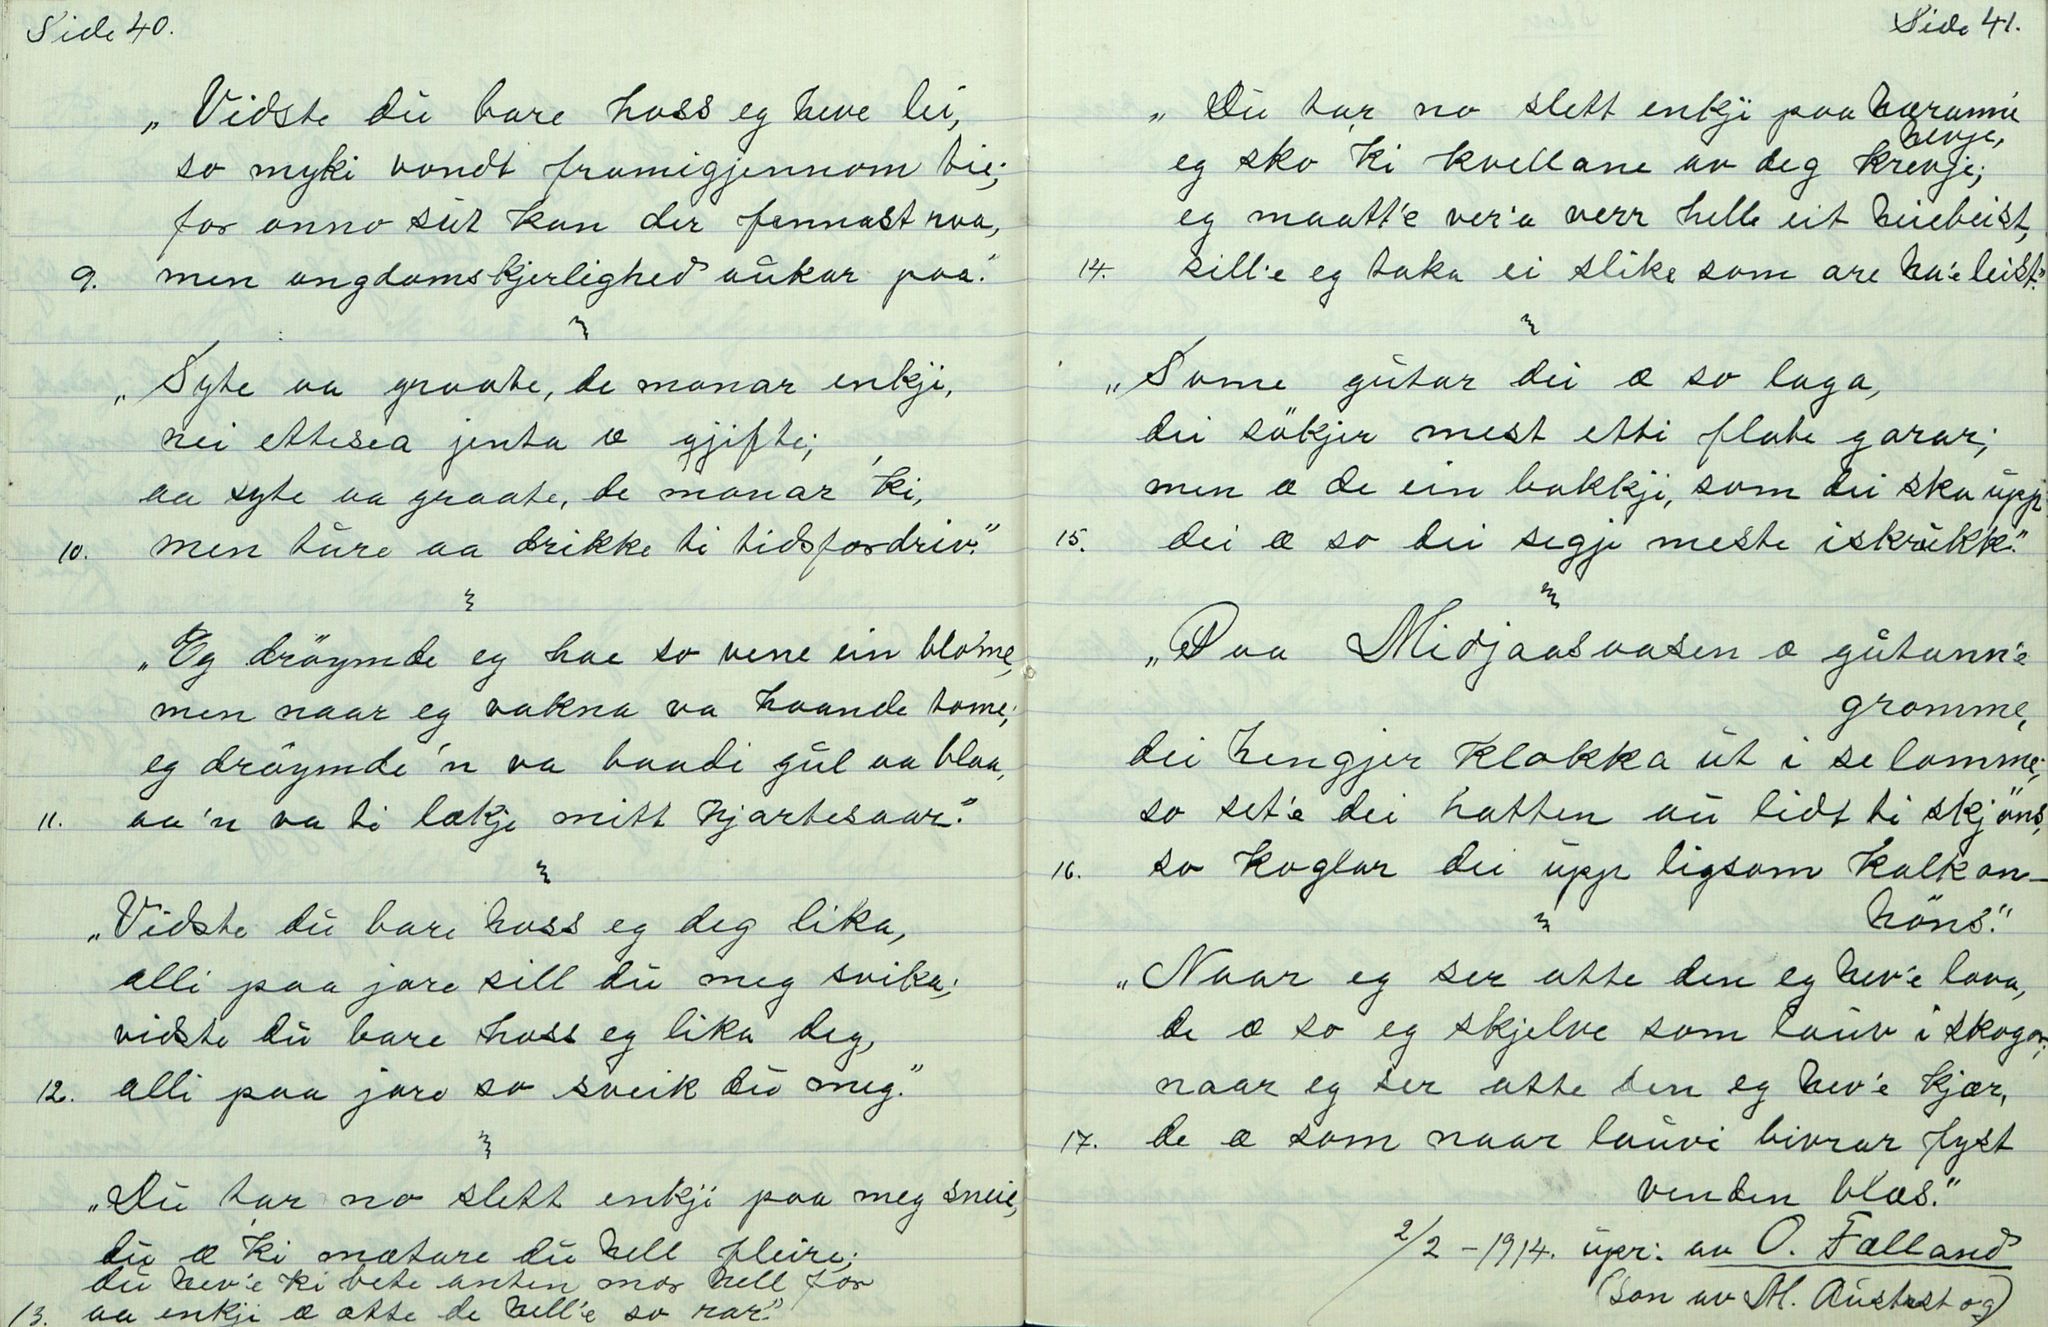 Side 40.
„Vidste du bare hoss eg heve lei,
so myki vondt framigjennom tie;
for anno sut kan der fennast raa,
9. men ongdomskjerlighed aukar paa."
„Syte aa graate, de monar enkji,
nei ettesea jenta æ gjifte;
aa syte aa graate, de monar 'ki,
10. men ture aa drikke ti tidsfordriv."
„Eg dröymde eg hae so vene ein blome,
men naar eg vakna va haande tome;
eg dröymde 'n va baadi gul aa blaa,
11. aa 'n va ti lækje mitt hjartesaar."
„Vidste du bare hoss eg deg lika,
alli paa jore sill du meg svika;
vidste du bare hoss eg lika deg,
12. alli paa jore so sveik du meg."
„Du tar no slett enkji paa meg sneie,
du æ ki mætare du hell fleire;
du hev'e ki bete anten mor hell far
13. aa enkji æ ætte de hell'e so rar."
Side 41.
„Du tar no slett enkji paa hærann'e
hevje,
eg sko ki kvellane av deg krevje;
eg maatt'e ver'a verr helle eit heiebeist,
14. sill'e eg taka ei slike som are ha'e leist."
„Some gutar dei æ so laga,
dei sökjer mest etti flate garar;
men æ de ein bakkji, som dei ska upp
15. dei æ so dei segje meste iskrukk."
„Paa Midjaasaasen æ gutann'e
gromme,
dei hengjer klokka ut i se lomme;
so set'e dei hatten au lidt ti skjöns,
16. so koglar dei upp ligsom kalkon-
höns."
„Naar eg ser atte den eg hev'e lova,
de æ so eg skjelve som lauv i skogar;
naar eg ser atte den eg hev'e kjær,
17. de æ som naar lauvi bivrar fyst
venden blæs."
2/2 - 1914. uppr: av O. Fælland
(Son av M. Austrst og)